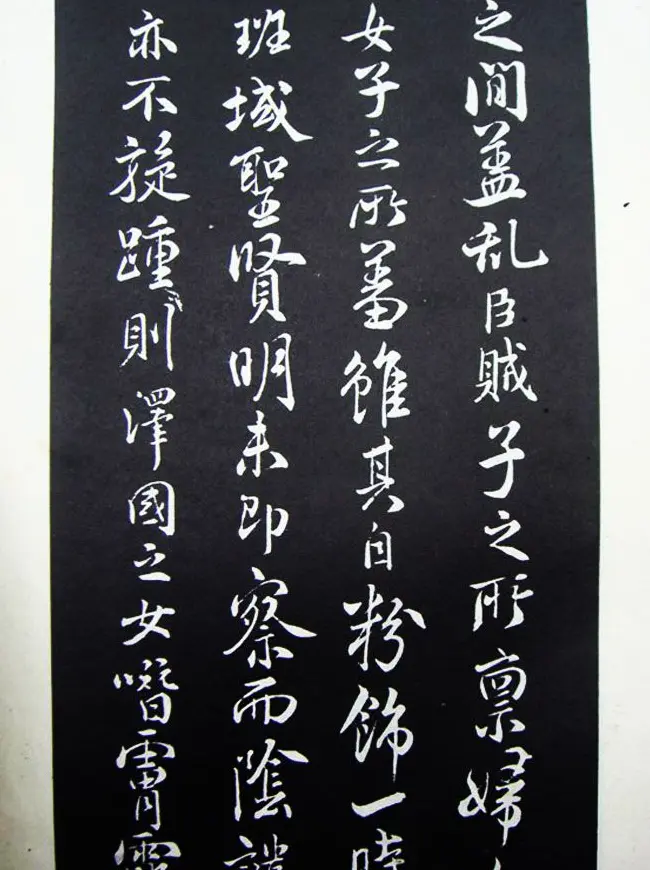 之間盖乱臣賊子之所禀婦
女子之所蓄雖其自粉飾一時
班域聖賢明未即察而陰
亦不旋踵則澤國之女噆霄